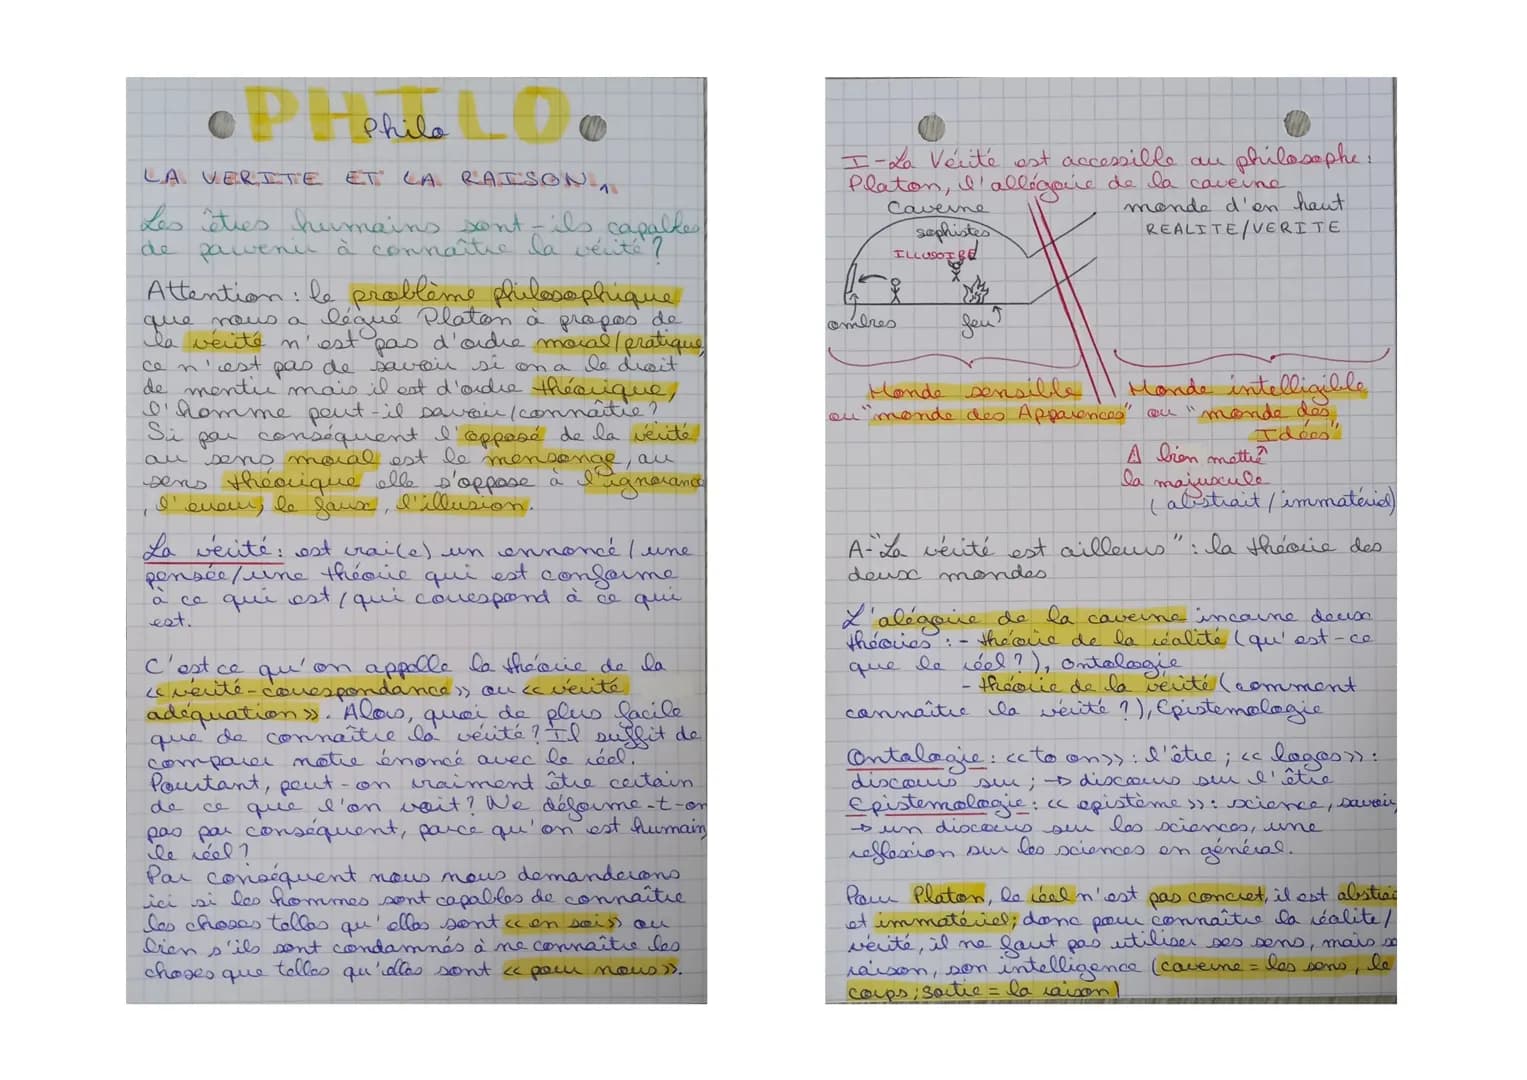 PHILO
Philo
LA VERITE ET LA RAISON
Les êtres humains sont-ils capables
de parvenir à connaître la vérité ?
Attention : le problème philosophique
que nous a légué Platon à propos de
la vérité n'est pas d'ordre moral/pratique,
ce n'est pas de savoir si on a le droit
de mentir mais il est d'ordre théorique,
l'homme peut-il savoir/connaître ?
Si par conséquent l'opposé de la vérité
au sens moral est le mensonge, au
sens théorique elle s'oppose à l'ignorance
, l'erreur, le faux, l'illusion.
La vérité : est vrai(e) un ennoncé / une
pensée/une théorie qui est conforme
à ce qui est/qui correspond à ce qui
est.
C'est ce qu'on appelle la théorie de la
<< vérité-correspondance >> ou << vérité
adéquation >>. Alors, quoi de plus facile
que de connaître la vérité ? Il suffit de
comparer notre énoncé avec le réel.
Pourtant, peut-on vraiment être certain
de ce que l'on voit ? Ne déforme-t-on
pas par conséquent, parce qu'on est humain
le réel ?
Par conséquent nous nous demanderons
ici si les hommes sont capables de connaître
les choses telles qu'elles sont << en soi >> ou
bien s'ils sont condamnés à ne connaître les
choses que telles qu'elles sont << pour nous >>.
I-La Vérité est accessible au philosophe :
Platon, l'allégorie de la caverne
Caverne
monde d'en haut
sophistes
REALITE/VERITE
ILLUSOIRE
ombres
feu
Monde sensible
Monde intelligible
ou "monde des Apparences"
ou "monde des
Idées"
⚠ bien mettre
la majuscule
(abstrait/immatériel)
A-"La vérité est ailleurs" : la théorie des
deux mondes
L'alégorie de la caverne incarne deux
théories : - théorie de la réalité (qu'est-ce
que le réel ?), ontologie
- théorie de la vérité (comment
connaître la vérité ?), Epistemologie
Ontologie : << to on >> : l'être ; << logos >> :
discours sur ; → discours sur l'être
Epistemologie : << epistème >> : science, savoir,
→ un discours sur les sciences, une
reflexion sur les sciences en général.
Pour Platon, le réel n'est pas concret, il est abstrait
et immatériel ; donc pour connaître la réalité/
vérité, il ne faut pas utiliser ses sens, mais sa
raison, son intelligence (caverne = les sens, le
corps ; sortie = la raison)